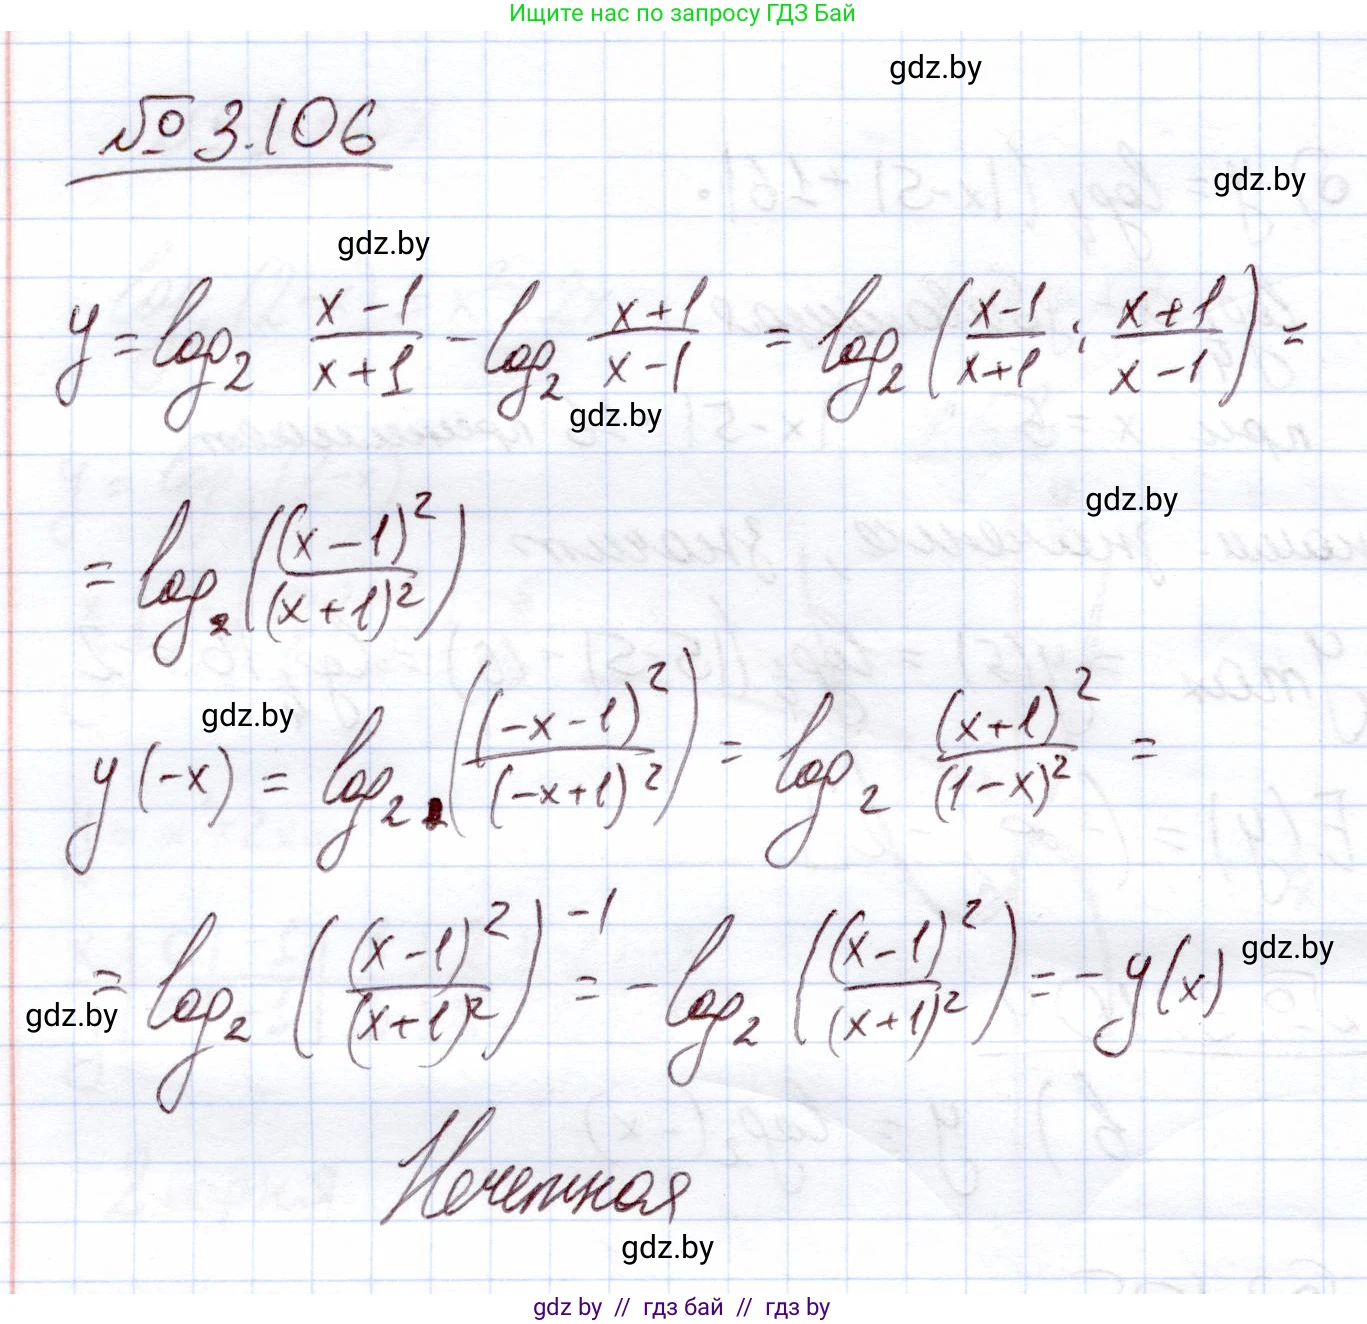 Ищите нас по запросу ГДЗ Бай
gdz.by
№ 3.106
gdz.by
gdz.by
y = log₂ (x-1)/(x+1) - log₂ (x+1)/(x-1) = log₂ ((x-1)/(x+1) : (x+1)/(x-1)) =
gdz.by
gdz.by
= log₂ ((x-1)²/(x+1)²)
gdz.by
y(-x) = log₂ ((-x-1)²/(-x+1)²) = log₂ (x+1)²/(1-x)² =
= log₂ ((x-1)²/(x+1)²)⁻¹ = - log₂ ((x-1)²/(x+1)²) = - y(x)
gdz.by
gdz.by
Нечетная
gdz.by
gdz by // гдз бай // гдз by